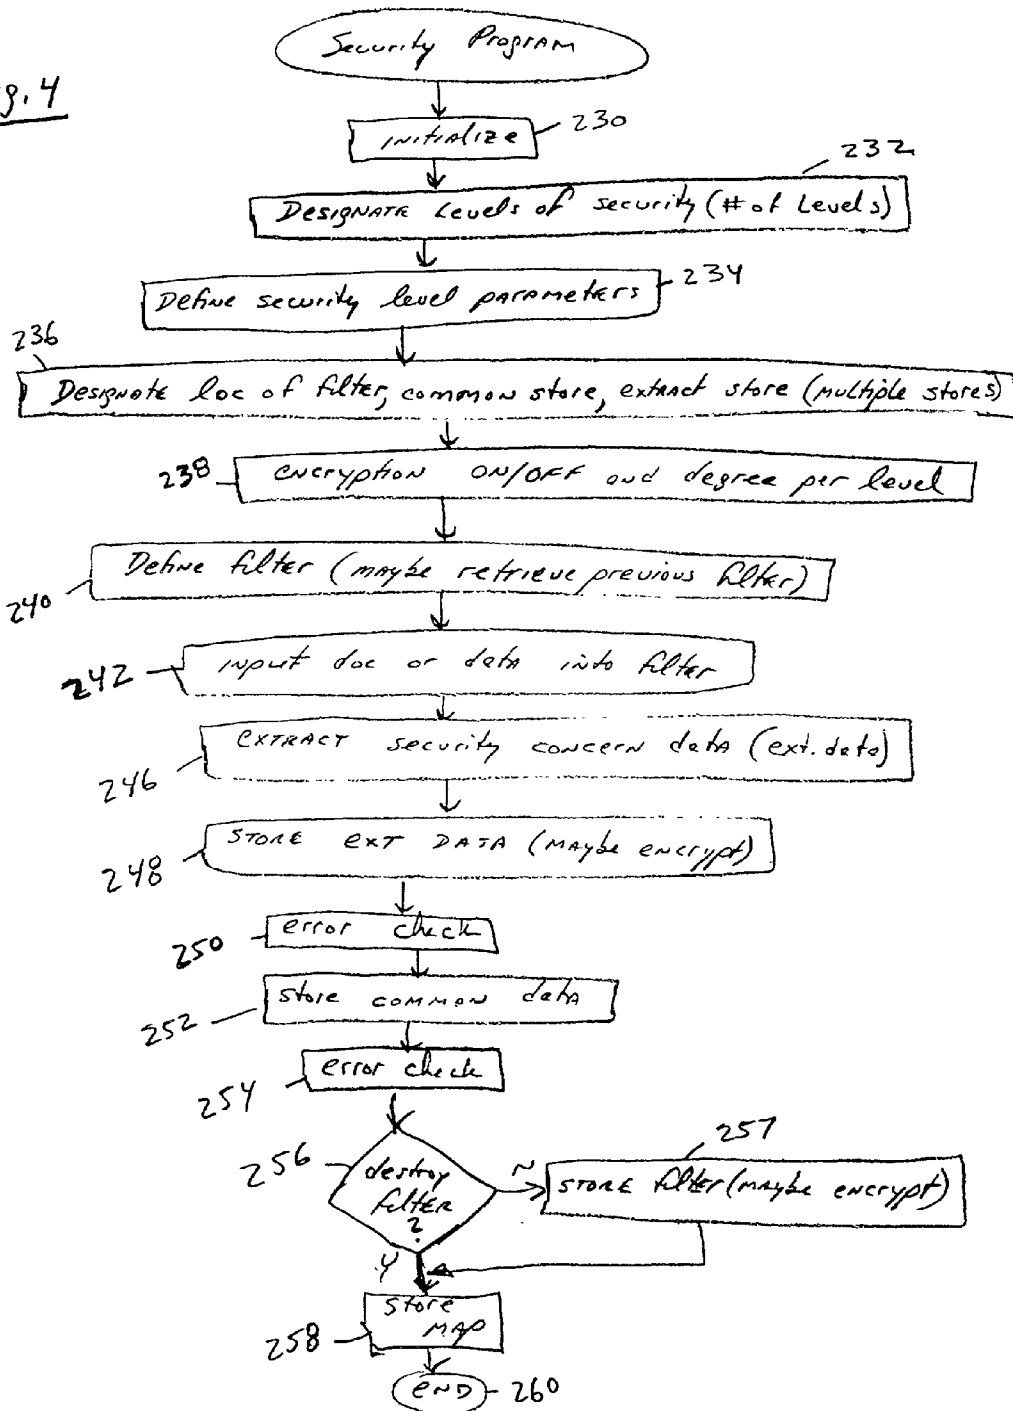 Security Program
g. 4
initialize
230
232
Designate Levels of security (# of Levels)
Define security level parameters
234
236
Designate loc of filter, common store, extract store (multiple stores)
238
encryption ON/OFF and degree per level
Define filter (maybe retrieve previous filter)
240
input doc or data into filter
242
extract security concern data (ext. data)
246
store ext data (maybe encrypt)
248
error check
250
store common data
252
error check
254
256
destroy
filter
?
N
257
store filter (maybe encrypt)
Y
store
map
258
end
260